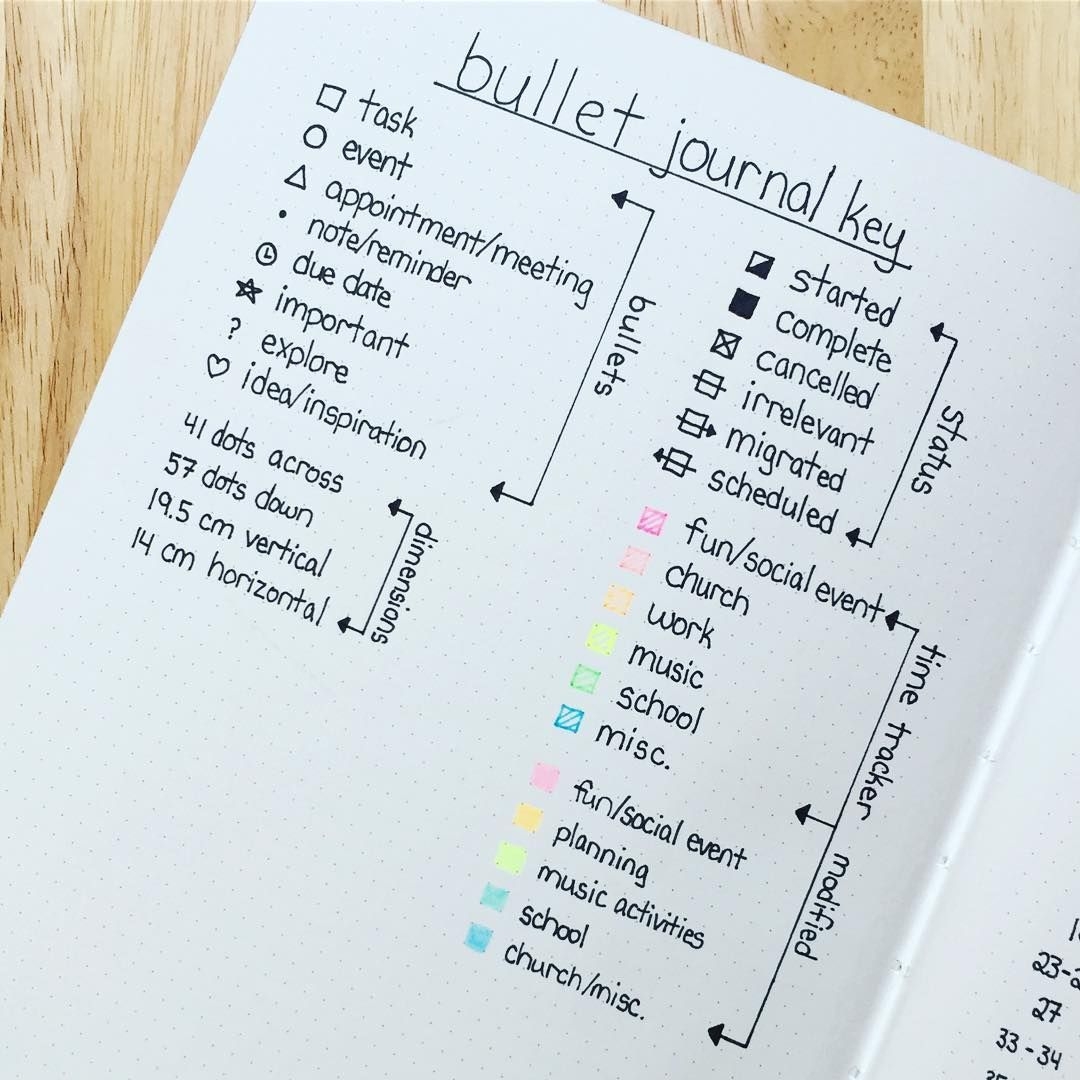 bullet journal key
task
event
appointment/meeting
note/reminder
due date
important
? explore
idea/inspiration
bullets
41 dots across
57 dots down
19.5 cm vertical
14 cm horizontal
dimensions
started
complete
cancelled
irrelevant
migrated
scheduled
status
fun/social event
church
work
music
school
misc.
time tracker
fun/social event
planning
music activities
school
church/misc.
modified
27
33-34